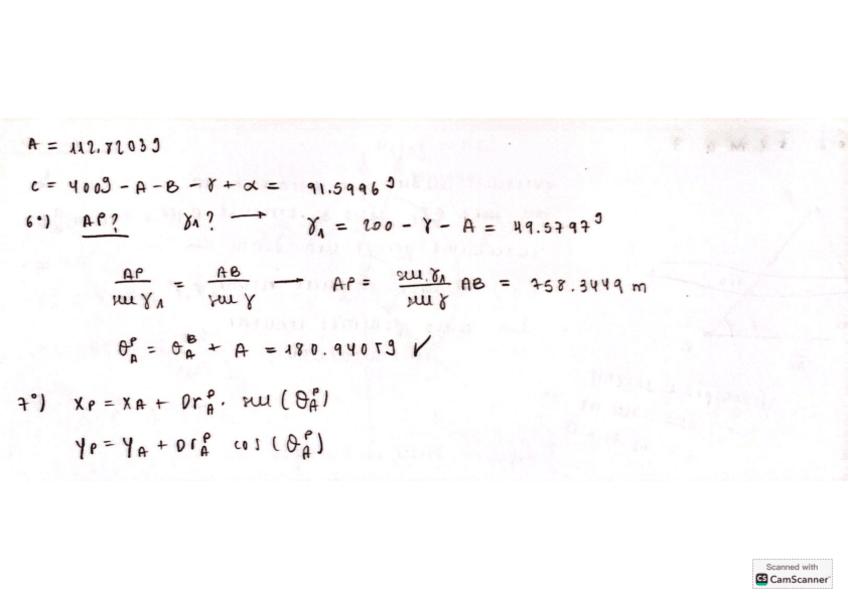 A = 112.8203g
C = 400g - A - B - γ + α = 91.5996g
6º) AP? γ1? → γ1 = 200 - γ - A = 49.5797g
AP / sen γ1 = AB / sen γ → AP = sen γ1 / sen γ AB = 758.3449 m
θ_A^P = θ_A^B + A = 180.9405g ✓
7º) XP = XA + Dr_A^P · sen (θ_A^P)
YP = YA + Dr_A^P cos (θ_A^P)
Scanned with
CS CamScanner